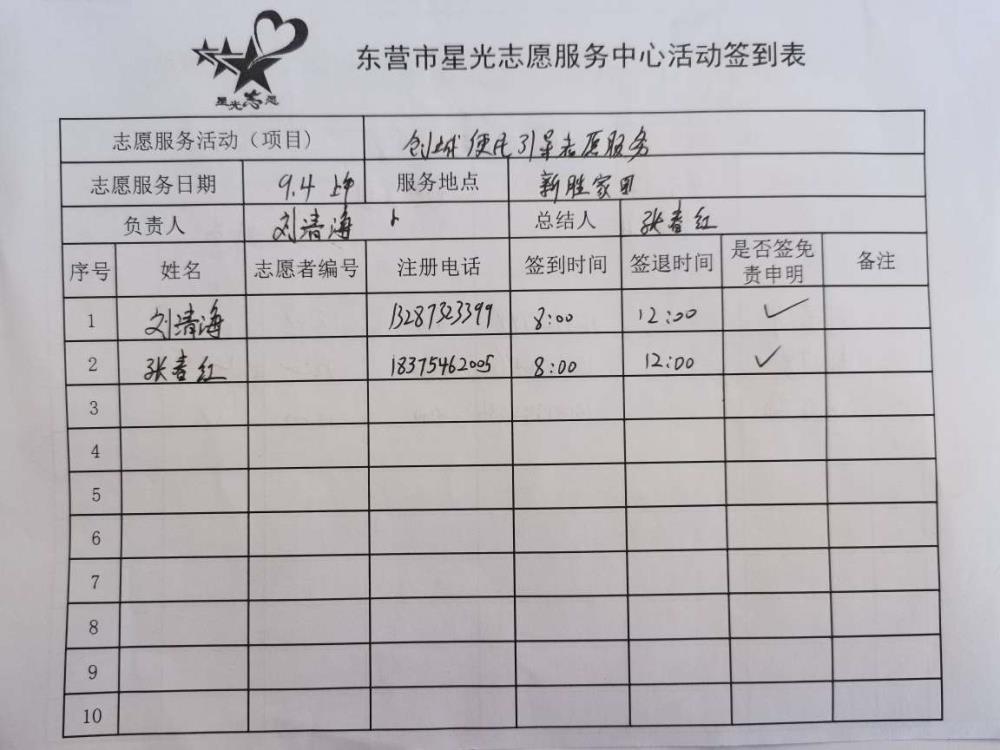 星光志愿
东营市星光志愿服务中心活动签到表
志愿服务活动（项目） 创城便民引导志愿服务
志愿服务日期 9.4 上午 服务地点 新胜家园
负责人 刘清海 总结人 张春红
序号 姓名 志愿者编号 注册电话 签到时间 签退时间 是否签免责申明 备注
1 刘清海 13287323399 8:00 12:00 ✓
2 张春红 18375462005 8:00 12:00 ✓
3
4
5
6
7
8
9
10